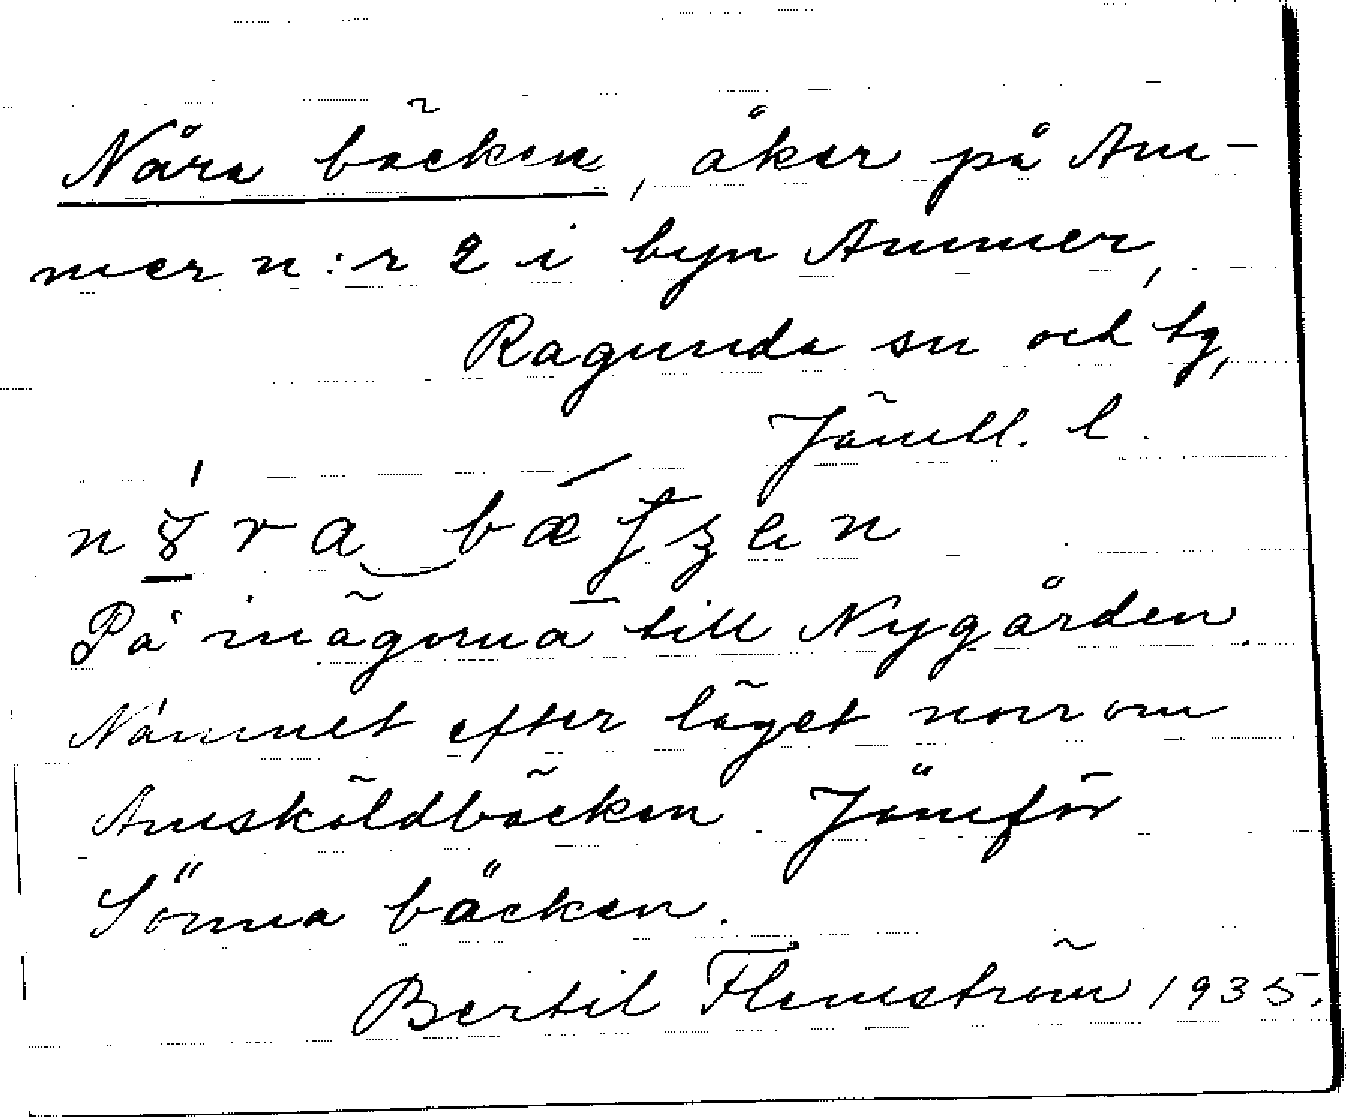 Nåra bäcken, åker på Am-
mer n:r 2 i byn Ammer,
Ragunda sn och tg,
Jämtl. l.
På inägorna till Nygården.
Namnet efter läget norr om
bäcken. Jämför
Sönna bäcken.
Bertil Flemström 1935.